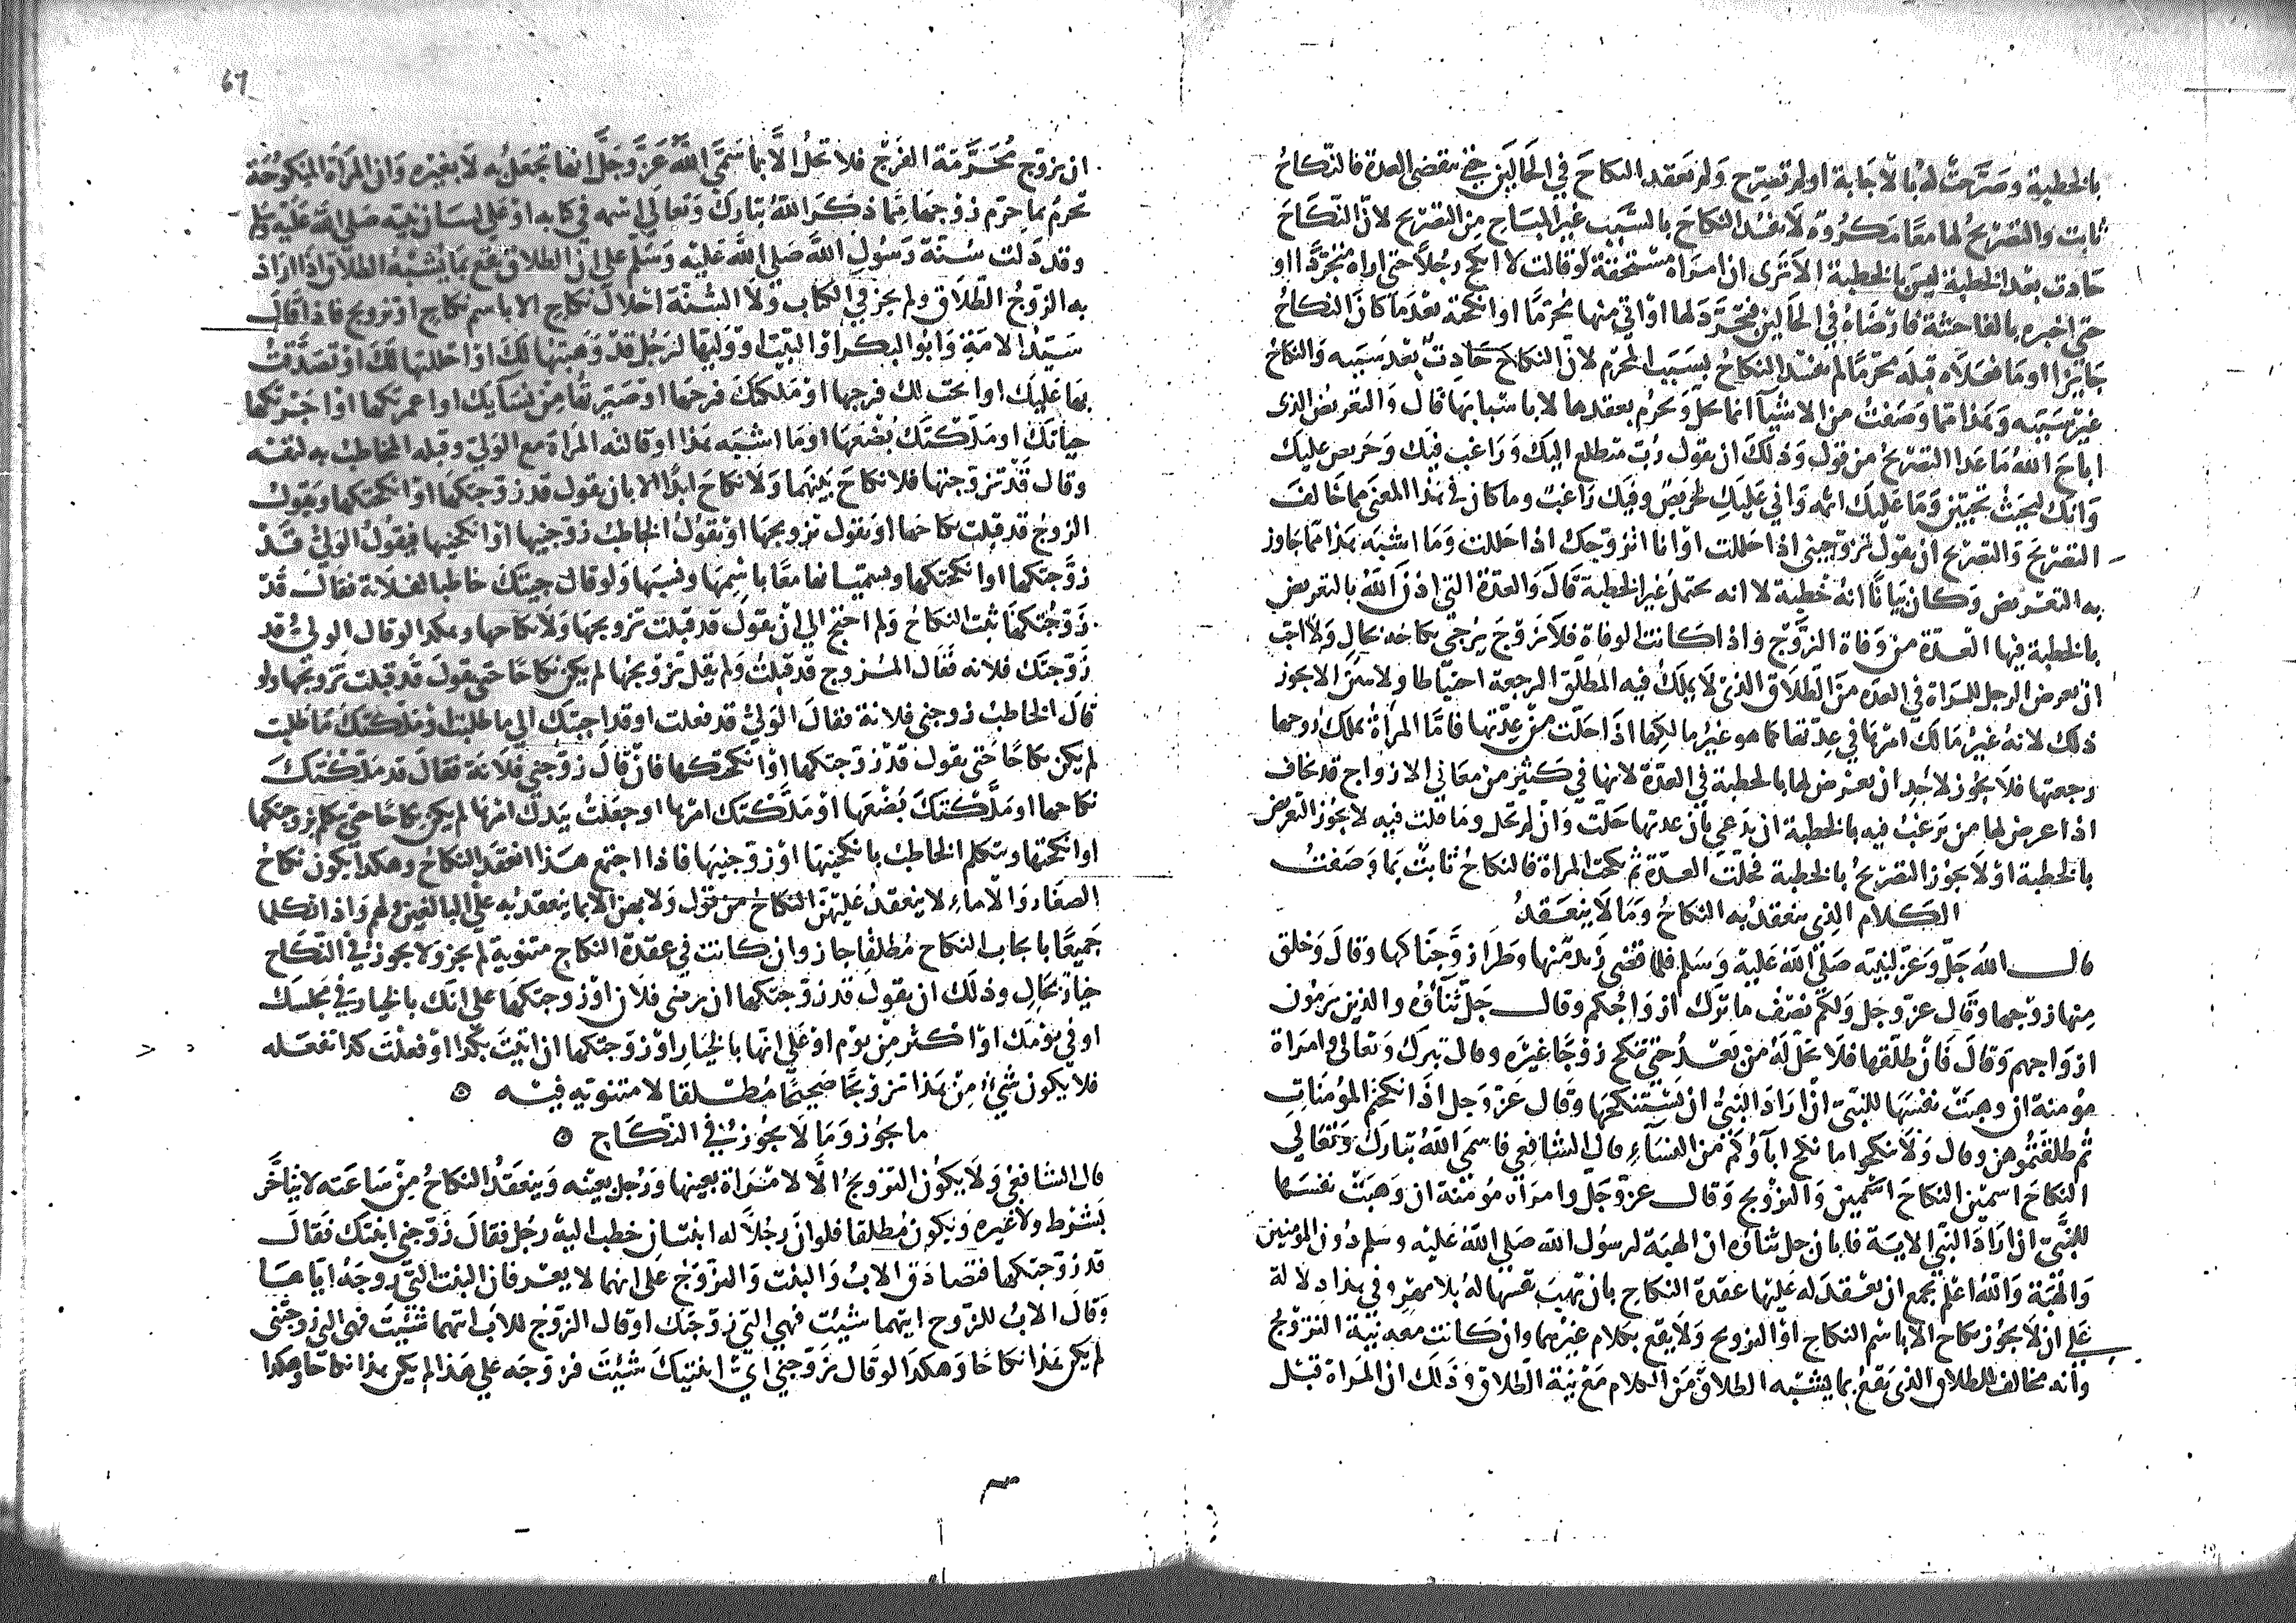 بالخطبة وصرحت له بالاجابة او لم تصرح ولم يعقد النكاح في الحالين حتى تنقضي العدة فالنكاح
ثابت والتصريح لهما معا مكروه لا يفسد النكاح بالسبب غير المباح من التصريح لان النكاح
حادث بعد الخطبة ليس بالخطبة الا ترى ان امراة مستخفة لو قالت لا انكح رجلا حتى اراه متجردا او
حتى اخبره بالفاحشة فارضاه في الحالين فتجرد لها او اتى منها محرما او انكحته بعدما كان النكاح
جايزا وما فعلاه قبله محرما لم يفسد النكاح بسبب المحرم لان النكاح حادث بعد سببه والنكاح
غير سببه وهذا مما وصفت من الاشيا انما يحل ويحرم بعقدها لا باسبابها قال والتعريض الذي
اباح الله ما عدا التصريح من قول وذلك ان يقول رب متطلع اليك وراغب فيك وحريص عليك
وانك لبحيث تحبين وما عليك ايمة واني عليك لحريص وفيك راغب وما كان في هذا المعنى مما خالف
التصريح والتصريح ان يقول تزوجيني اذا حللت او انا اتزوجك اذا حللت وما اشبه هذا مما جاوز
به التعريض وكان بيانا انه خطبة لا انه يحتمل غير الخطبة قال والعدة التي اذن الله بالتعريض
بالخطبة فيها العدة من وفاة الزوج واذا كانت الوفاة فلا زوج يرجى نكاحه بحال ولا احب
ان يعرض الرجل للمراة في العدة من الطلاق الذي لا يملك فيه المطلق الرجعة احتياطا ولا يبين الا يجوز
ذلك لانه غير مالك امرها في عدتها كما هو غير مالكها اذا حلت من عدتها فاما المراة يملك زوجها
رجعتها فلا يجوز لاحد ان يعرض لها بالخطبة في العدة لانها في كثير من معاني الازواج قد يخاف
اذا عرض لها من ترغب فيه بالخطبة ان تدعي بان عدتها حلت وان لم تحل وما قلت فيه لا يجوز التعريض
بالخطبة او لا يجوز التصريح بالخطبة فحلت العدة ثم نكحت المراة فالنكاح ثابت بما وصفت
الكلام الذي ينعقد به النكاح وما لا ينعقد
قال الله جل وعز لنبيه صلى الله عليه وسلم فلما قضى زيد منها وطرا زوجناكها وقال وخلق
منها زوجها وقال عز وجل ولكم نصف ما ترك ازواجكم وقال جل ثناؤه والذين يرمون
ازواجهم وقال فان طلقها فلا تحل له من بعد حتى تنكح زوجا غيره وقال تبرك وتعالى وامراة
مومنة ان وهبت نفسها للنبي ان اراد النبي ان يستنكحها وقال عز وجل اذا نكحتم المومنات
ثم طلقتموهن وقال ولا تنكحوا ما نكح اباؤكم من النساء قال الشافعي فاسمى الله تبارك وتعالى
النكاح اسمين النكاح والتزويج وقال عز وجل وامراة مؤمنة ان وهبت نفسها
للنبي ان اراد النبي الاية فابان جل ثناؤه ان الهبة لرسول الله صلى الله عليه وسلم دون المومنين
والهبة والله اعلم تجمع ان يعقد له عليها عقدة النكاح بان تهب نفسها له بلا مهر وفي هذا دلالة
على ان لا يجوز نكاح الا باسم النكاح او التزويج ولا يقع بكلام غيرهما وان كانت معه نية التزوج
وانه مخالف للطلاق الذي يقع بما يشبه الطلاق من الكلام مع نية الطلاق وذلك ان المراة قبل
67
ان تزوج محرمة الفرج فلا تحل الا بما سمى الله عز وجل انها تحل به لا بغيره وان المراة المنكوحة
تحرم بما حرم زوجها مما ذكر الله تبارك وتعالى اسمه في كتابه او على لسان نبيه صلى الله عليه وسلم
وقد دلت سنة رسول الله صلى الله عليه وسلم على ان الطلاق يقع بما يشبه الطلاق اذا اراد
به الزوج الطلاق ولم يجز في الكتاب ولا السنة احلال نكاح الا باسم نكاح او تزويج فاذا قال
سيد الامة وابو البكر او الثيب او وليها لرجل قد وهبتها لك او احللتها لك او تصدقت
بها عليك او ابحت لك فرجها او ملكتك فرجها او صيرتها من نسايك او اعمرتكها او اجرتكها
حياتك او ملكتك بضعها او ما اشبه هذا او قالته المراة مع الولي وقبله المخاطب به لنفسه
وقال قد تزوجتها فلا نكاح بينهما ولا نكاح ابدا الا بان يقول قد زوجتكها او انكحتكها ويقول
الزوج قد قبلت نكاحها او يقول تزويجها او يقول الخاطب زوجنيها او انكحنيها فيقول الولي قد
زوجتكها او انكحتكها ويسميانها معا باسمها ونسبها ولو قال جيتك خاطبا لفلانة فقال قد
زوجتكها ثبت النكاح ولم احتج الى ان يقول قد قبلت تزويجها ولا نكاحها وهكذا لو قال الولي قد
زوجتك فلانه فقال المزوج قد قبلت ولم يقل تزويجها لم يكن نكاحا حتى يقول قد قبلت تزويجها ولو
قال الخاطب زوجني فلانة فقال الولي قد فعلت او قد اجبتك الى ما طلبت او ملكتك ما طلبت
لم يكن نكاحا حتى يقول قد زوجتكها او انكحتكها فان قال زوجني فلانة فقال قد ملكتك
نكاحها او ملكتك بضعها او ملكتك امرها او جعلت بيدك امرها لم يكن نكاحا حتى يتكلم بزوجتكها
او انكحتها ويتكلم الخاطب بانكحنيها او زوجنيها فاذا اجتمع هذا انعقد النكاح وهكذا يكون نكاح
الصغار والاماء لا ينعقد عليهن النكاح من قول ولا لهن الا بما ينعقد به على البالغين ولهم واذا تكلما
جميعا بايجاب النكاح مطلقا جاز وان كانت في عقدة النكاح مثنوية لم يجز ولا يجوز في النكاح
خيار بحال وذلك ان يقول قد زوجتكها ان رضى فلان او زوجتكها على انك بالخيار في مجلسك
او في يومك او اكثر من يوم او على انها بالخيار او زوجتكها ان اتيت بكذا او فعلت كذا تفعله
فلا يكون شيء من هذا تزويجا صحيحا مطلقا لا مثنوية فيه
ما يجوز وما لا يجوز في النكاح
قال الشافعي ولا يكون التزويج الا لامراة بعينها ورجل بعينه وينعقد النكاح من ساعته لا يتاخر
بشرط ولا غيره ويكون مطلقا فلو ان رجلا له ابنتان خطب اليه رجل فقال زوجني ابنتك فقال
قد زوجتكها فتصادق الاب والبنت والزوج على انهما لا يعرفان البنت التي زوجه اياها
وقال الاب للزوج ايتهما شيت فهي التي زوجتك او قال الزوج للاب ايتهما شيت فهي التي زوجتني
لم يكن هذا نكاحا وهكذا لو قال زوجني اي ابنتيك شيت فزوجه على هذا لم يكن هذا نكاحا وهكذا